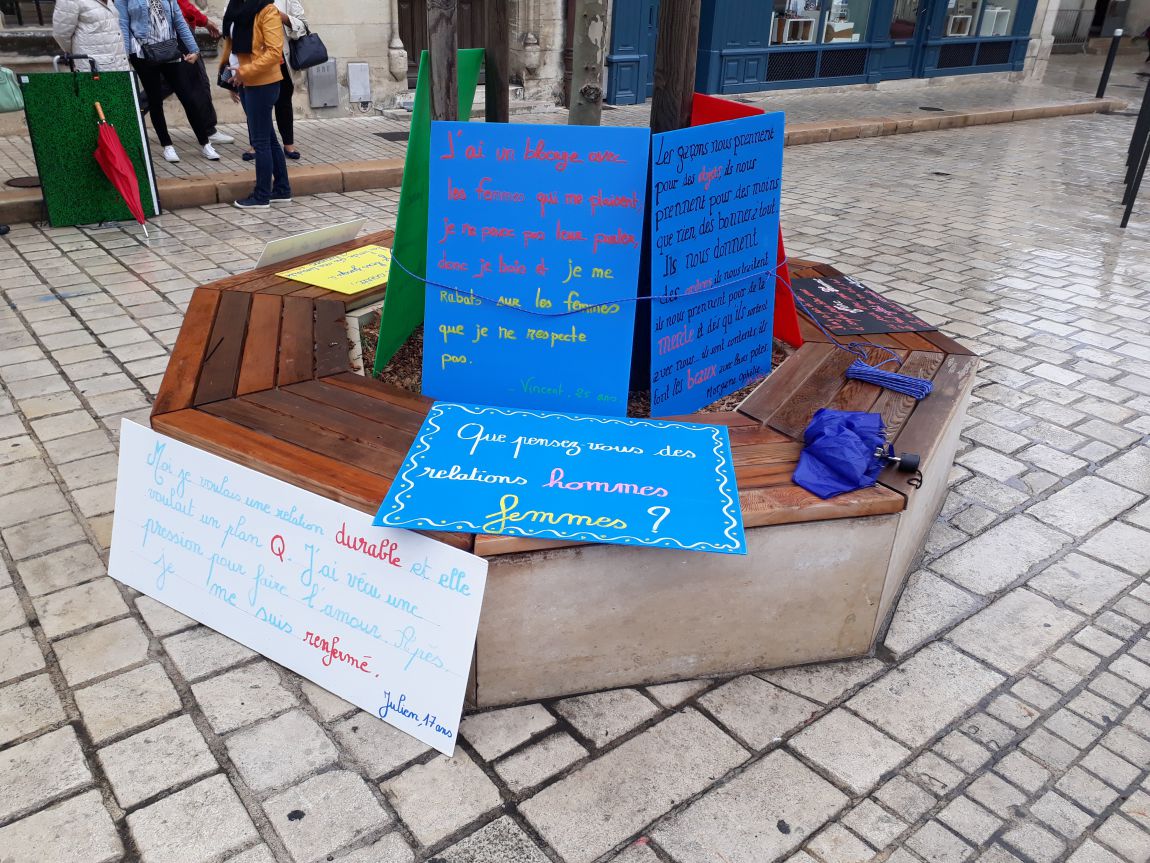 J'ai un blocage avec
les femmes qui me plaisent,
je ne parc pas leur parler,
donc je baie et je me
Rabats sur les femmes
que je ne respecte
pas.
Vincent, 25 ans
Les garçons nous prennent
pour des objets, ils nous
prennent pour des moins
que rien, des bonnes à tout
Ils nous donnent
des ils nous traitent
ils nous prennent pour de la
merde et dès qu'ils sortent
avec nous... ils sont contents, ils
font les beaux avec leurs potes.
Morgane Ophélie
Que pensez-vous des
relations hommes
femmes ?
Moi je voulais une relation durable et elle
voulait un plan Q. J'ai vécu une
pression pour faire l'amour. Après,
je me suis renfermé.
Julien, 17 ans